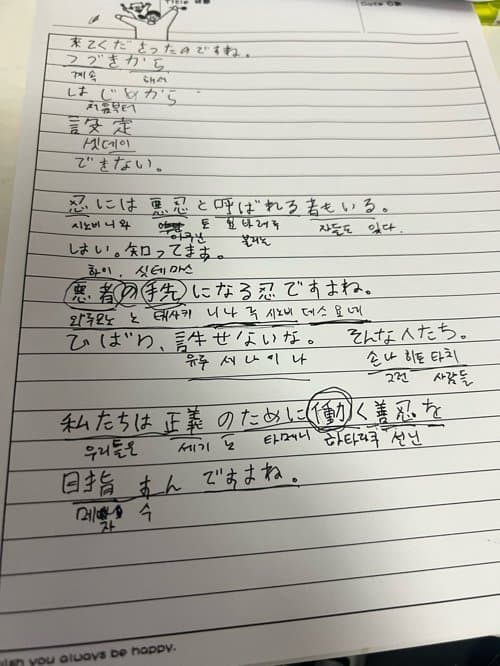 Title 제목
Date 날짜
来てくださったのですね。
つづきから
계속 해서
はじめから
처음부터
設定
셋데이
できない。
忍には悪忍と呼ばれる者もいる。
시노비 니와 토 욉바레루 자들도 있다.
아쿠닌 불리는
はい。知ってます。
하이. 싯테마스
悪者の手先になる忍ですよね。
와루모노 노 테사키 니나루 시노비 데스 요네
ひばり、許せないな。 そんな人たち。
유루 세나이나 손나 히토 타치
그런 사람들
私たちは正義のために働く善忍を
우리들은 세기 노 타메니 하타라쿠 선닌
目指すんですよね。
메 수
자
wish you always be happy.